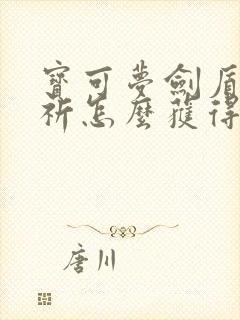 寶可夢劍盾
祈怎麼獲得
唐川